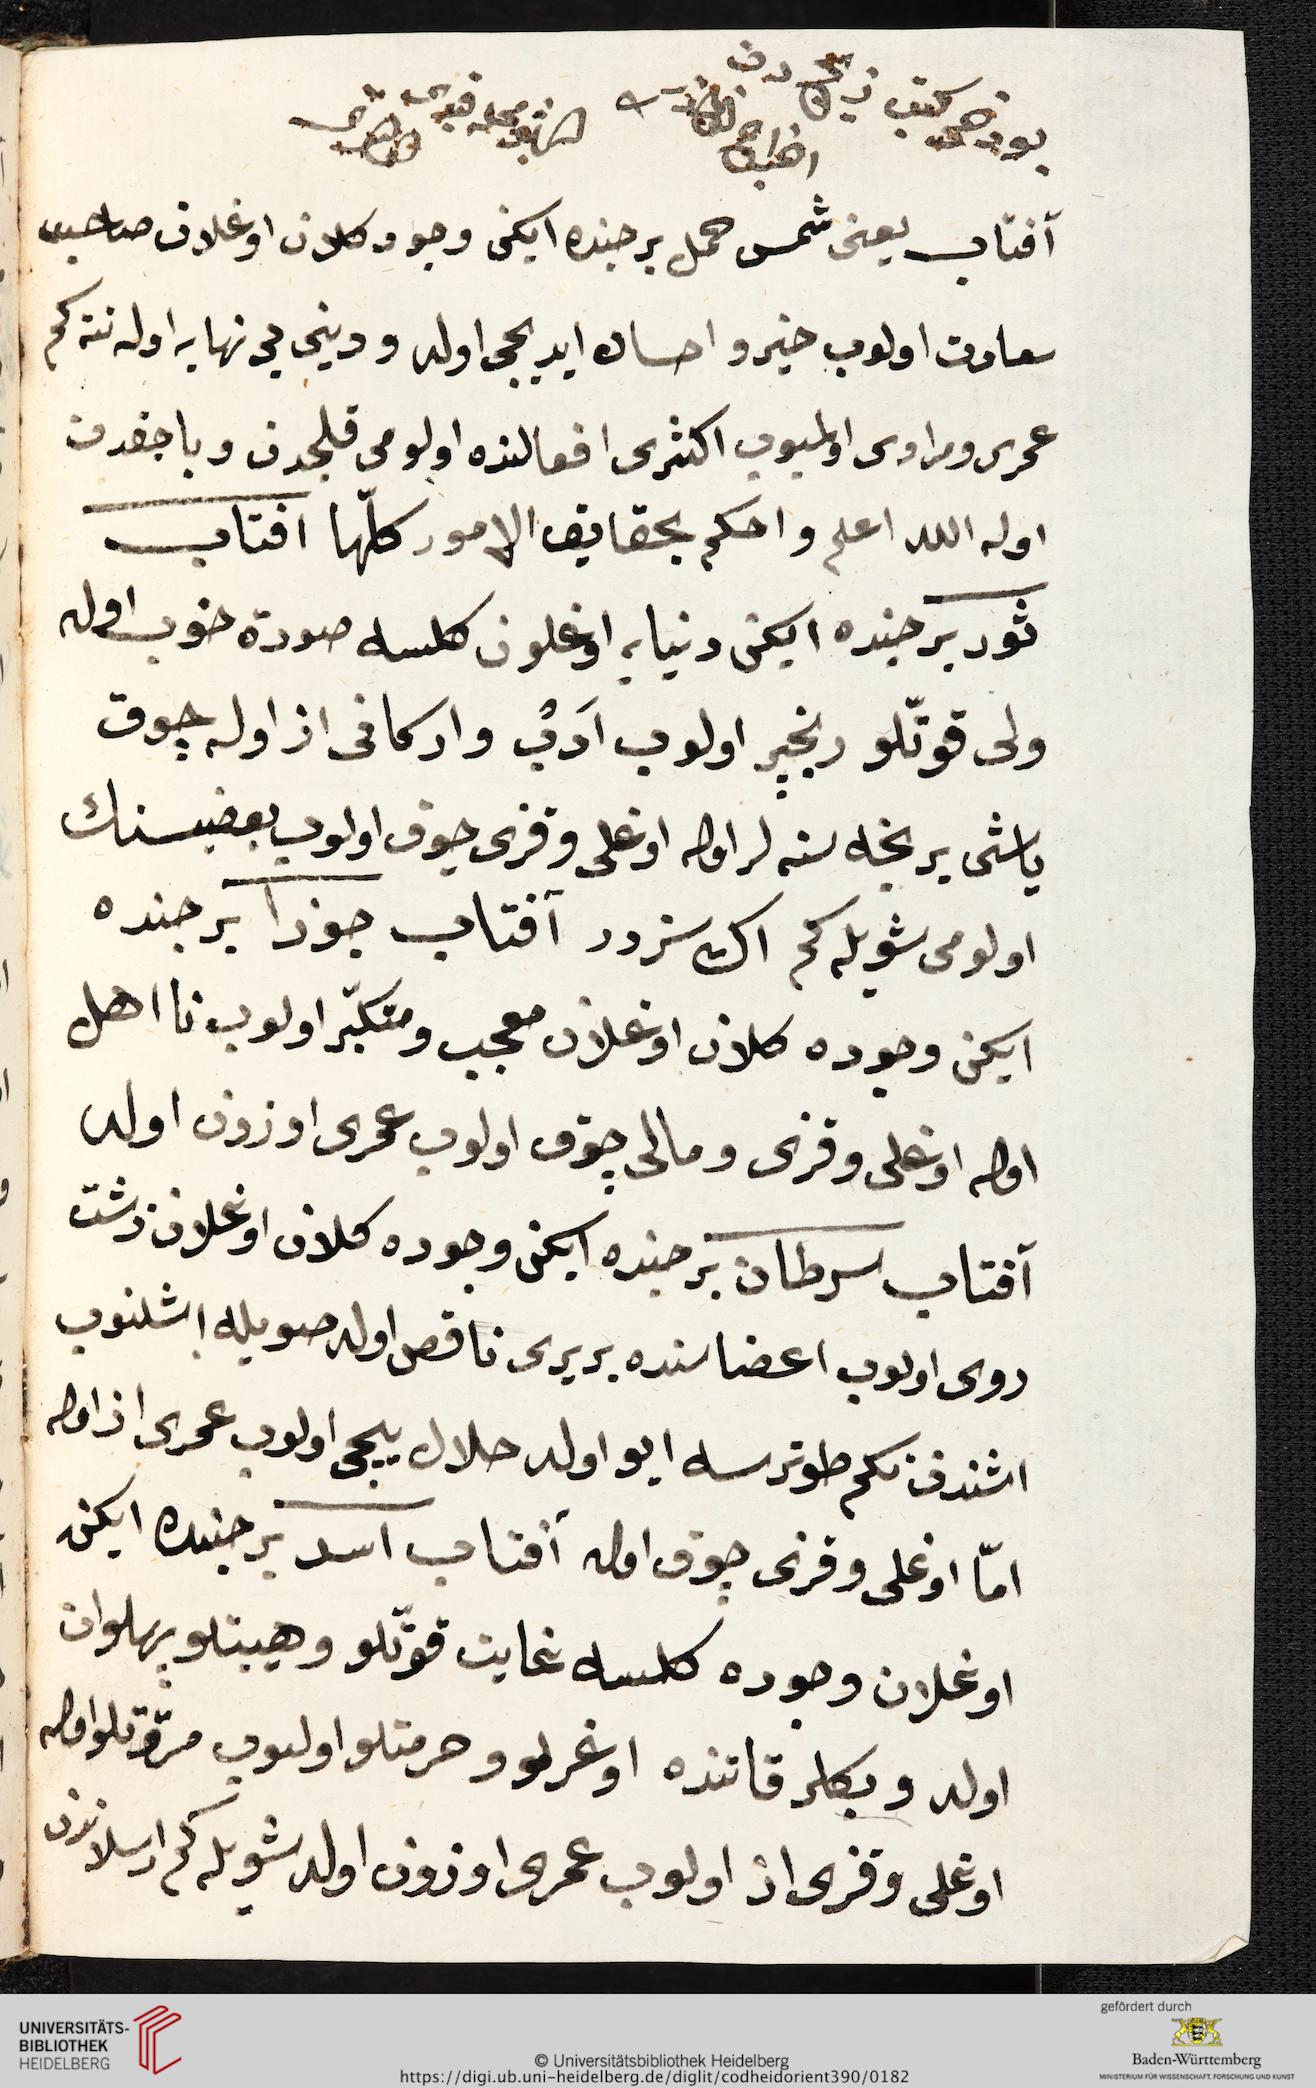 بو دخی كتب
آفتاب یعنی شمس حمل برجنده ایكن وجوده كلان اوغلان صاحب
سعادت اولوب خیر و احسان ایدیجی اولد و دینی بی نهایه اوله نته كم
عمری و مرادی اولمیوب اكثری افعالنده اولومی قلجدن و یا
اوله الله اعلم و احكم بحقایق الامور كلّها افتاب
ثور برجنده ایكن دنیایه اوغلون كلسه صورة خوب اوله
ولی قوتّلو رنجبر اولوب ادب و اركانی از اوله چوق
یاشی یر نجه سنه لر اوله اوغلی و قزی چوق اولوب بعضیسنك
اولومی شویله كم اك سزدر آفتاب جوزا برجنده
ایكن وجوده كلان اوغلان معجب و متكبّر اولوب نا اهل
اوله اوغلی و قزی و مالی چوق اولوب عمری اوزون اولد
آفتاب سرطان برجنده ایكن وجوده كلان اوغلان زشت
روی اولوب اعضاسنده بر یری ناقص اولد صویله اشلنوب
اشندن كم طوترسه ایو اولد حلال ییجی اولوب عمری از اوله
امّا اوغلی و قزی چوق اوله آفتاب اسد برجنده ایكن
اوغلان وجوده كلسه غایت قوتّلو و هیبتلو پهلوان
اولد و بكلر قاتنده اوغرلو و حرمتلو اولوب مروّتلو اوله
اوغلی و قزی از اولوب عمری اوزون اولد شویله كم ارسلاندن
UNIVERSITÄTS-
BIBLIOTHEK
HEIDELBERG
© Universitätsbibliothek Heidelberg
https://digi.ub.uni-heidelberg.de/diglit/codheidorient390/0182
gefördert durch
Baden-Württemberg
MINISTERIUM FÜR WISSENSCHAFT, FORSCHUNG UND KUNST